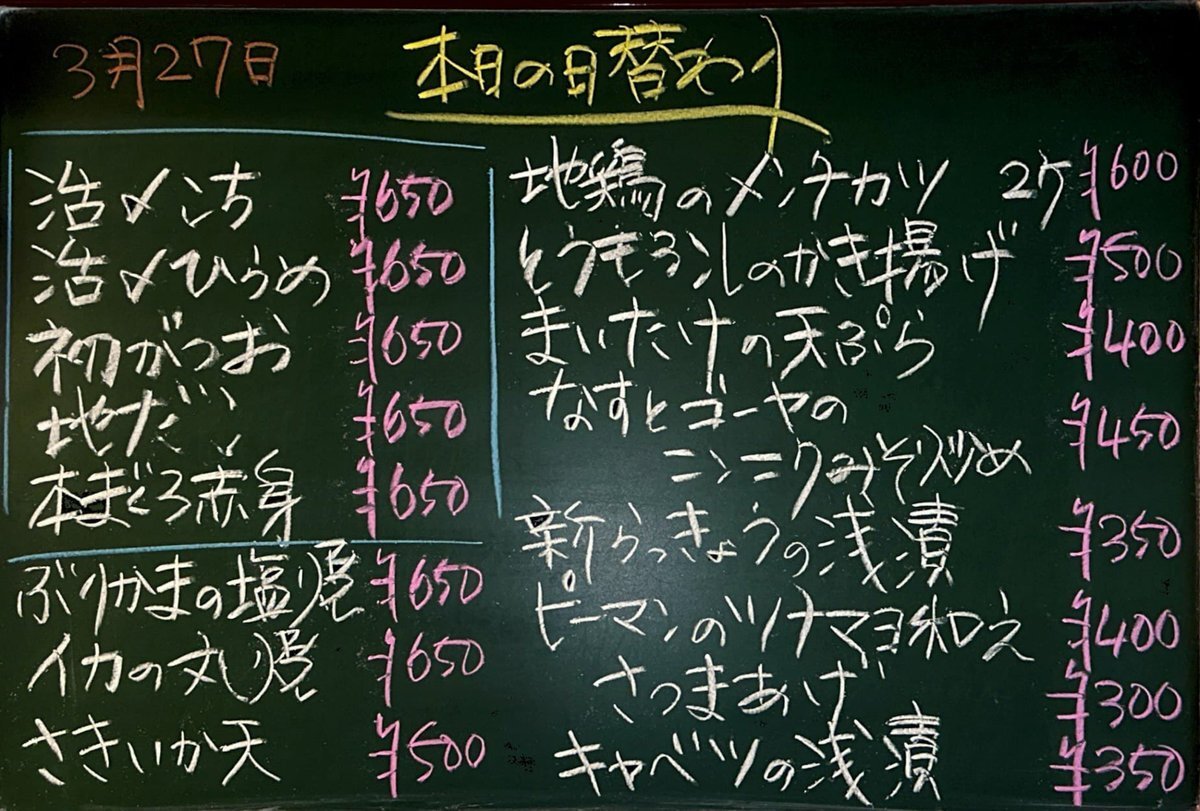 3月27日
本日の日替わり
活〆こち ¥650
活〆ひらめ ¥650
初がつお ¥650
地だい ¥650
本まぐろ赤身 ¥650
ぶりかまの塩焼 ¥650
イカの丸焼 ¥650
さきいか天 ¥500
地鶏のメンチカツ 2ケ ¥600
とうもろこしのかき揚げ ¥500
まいたけの天ぷら ¥400
なすとゴーヤの
ニンニクみそ炒め ¥450
新らっきょうの浅漬 ¥350
ピーマンのツナマヨ和え ¥400
さつまあげ ¥300
キャベツの浅漬 ¥350